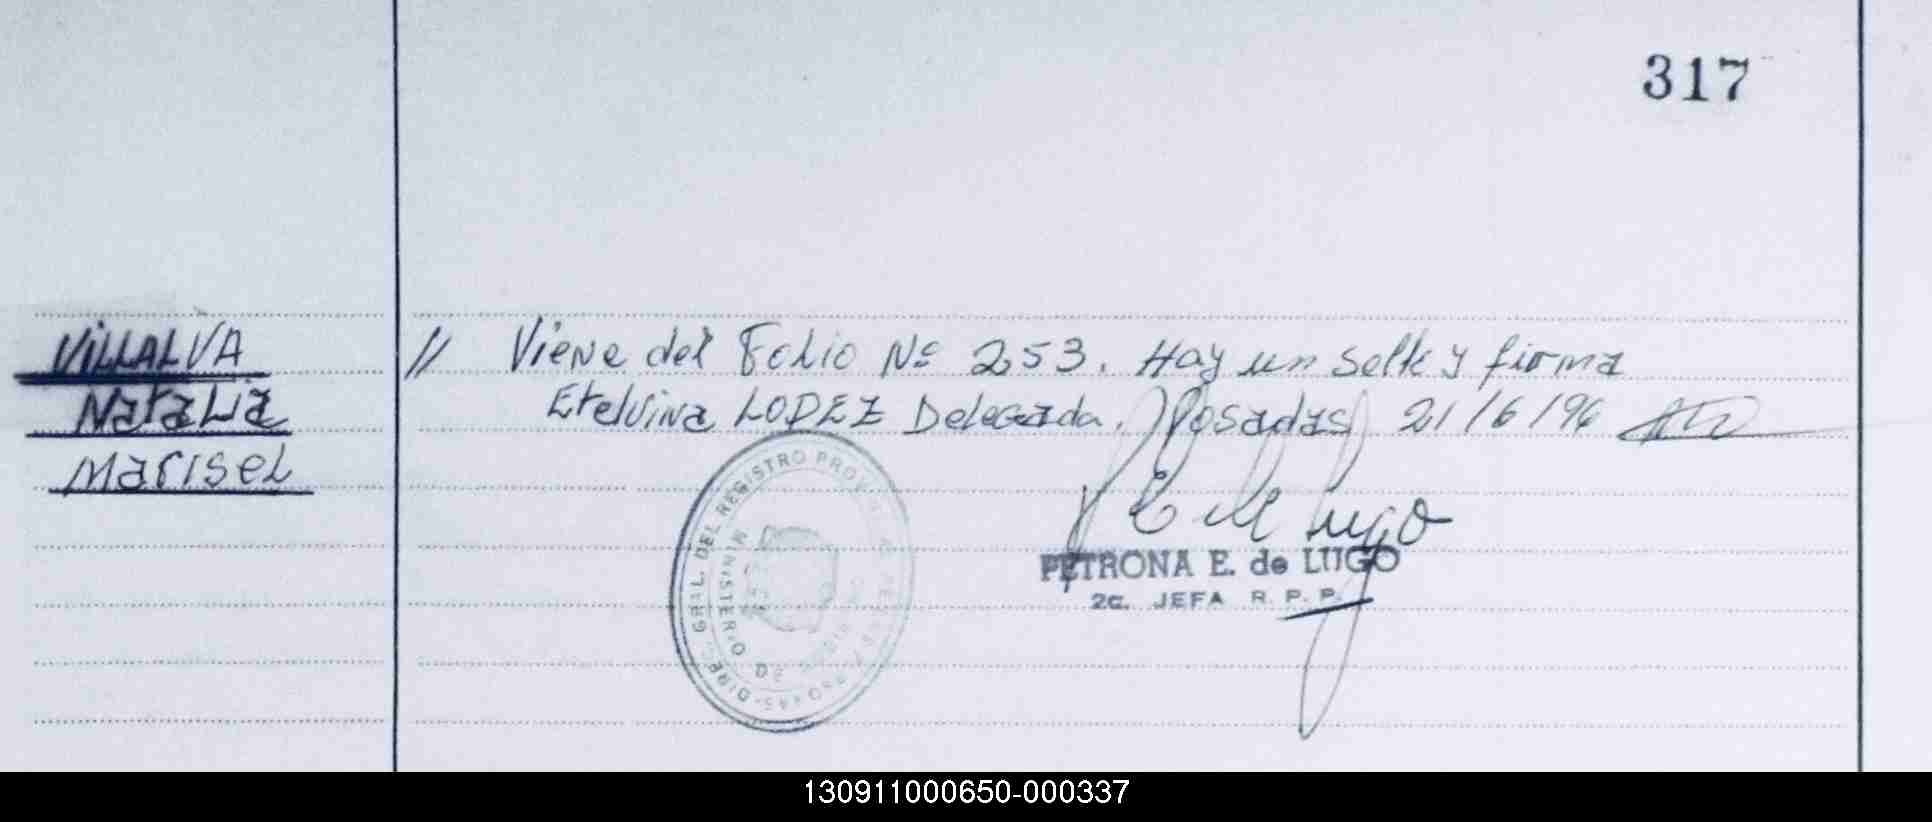 317
VILLALVA
Natalia
Marisel
// Viene del Folio Nº 253. Hay un sello y firma
Etelvina LOPEZ Delegada. Posadas 21/6/96
P E de Lugo
PETRONA E. de LUGO
2a. JEFA R. P. P.
DIREC. GRAL. DEL REGISTRO PROV. DE LAS PERSONAS
MINISTERIO DE
130911000650-000337